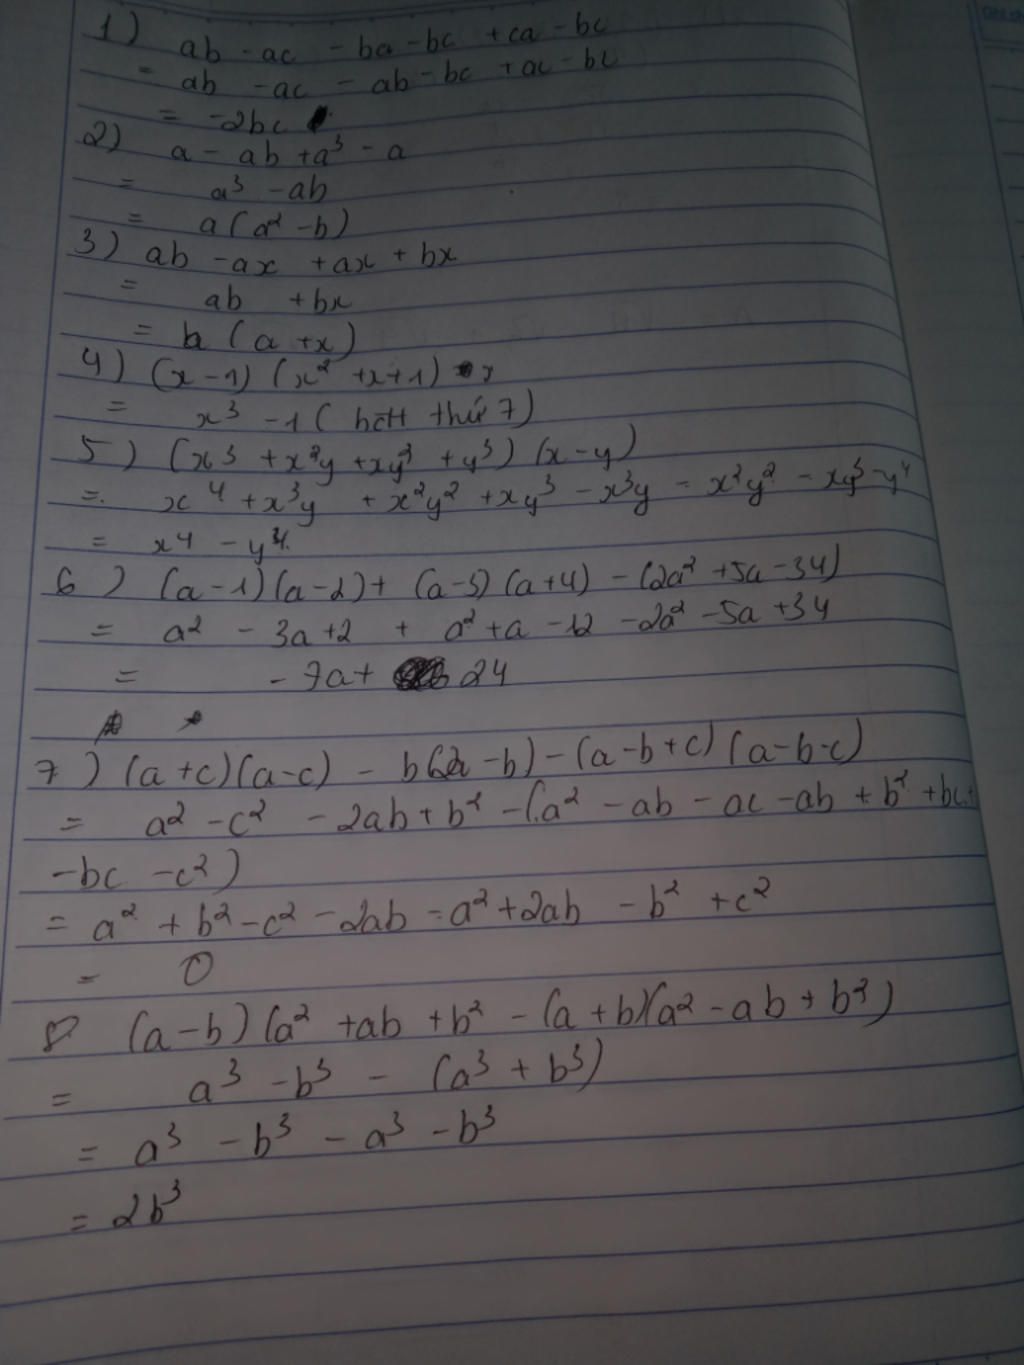 1) ab - ac - ba - bc + ca - bc
= ab - ac - ab - bc + ac - bc
= -2bc
2) a - ab + a³ - a
= a³ - ab
= a(a² - b)
3) ab - ax + ax + bx
= ab + bx
= b (a + x)
4) (x - 1) (x² + x + 1)
= x³ - 1 ( hđtt thứ 7)
5) (x³ + x²y + xy² + y³) (x - y)
= x⁴ + x³y + x²y² + xy³ - x³y - x²y² - xy³ - y⁴
= x⁴ - y⁴.
6) (a - 1)(a - 2) + (a - 3)(a + 4) - (2a² + 5a - 34)
= a² - 3a + 2 + a² + a - 12 - 2a² - 5a + 34
= - 7a + 24
7) (a + c)(a - c) - b(2a - b) - (a - b + c)(a - b - c)
= a² - c² - 2ab + b² - (a² - ab - ac - ab + b² + bc +
- bc - c²)
= a² + b² - c² - 2ab - a² + 2ab - b² + c²
= 0
8) (a - b)(a² + ab + b² - (a + b)(a² - ab + b²)
= a³ - b³ - (a³ + b³)
= a³ - b³ - a³ - b³
= 2b³